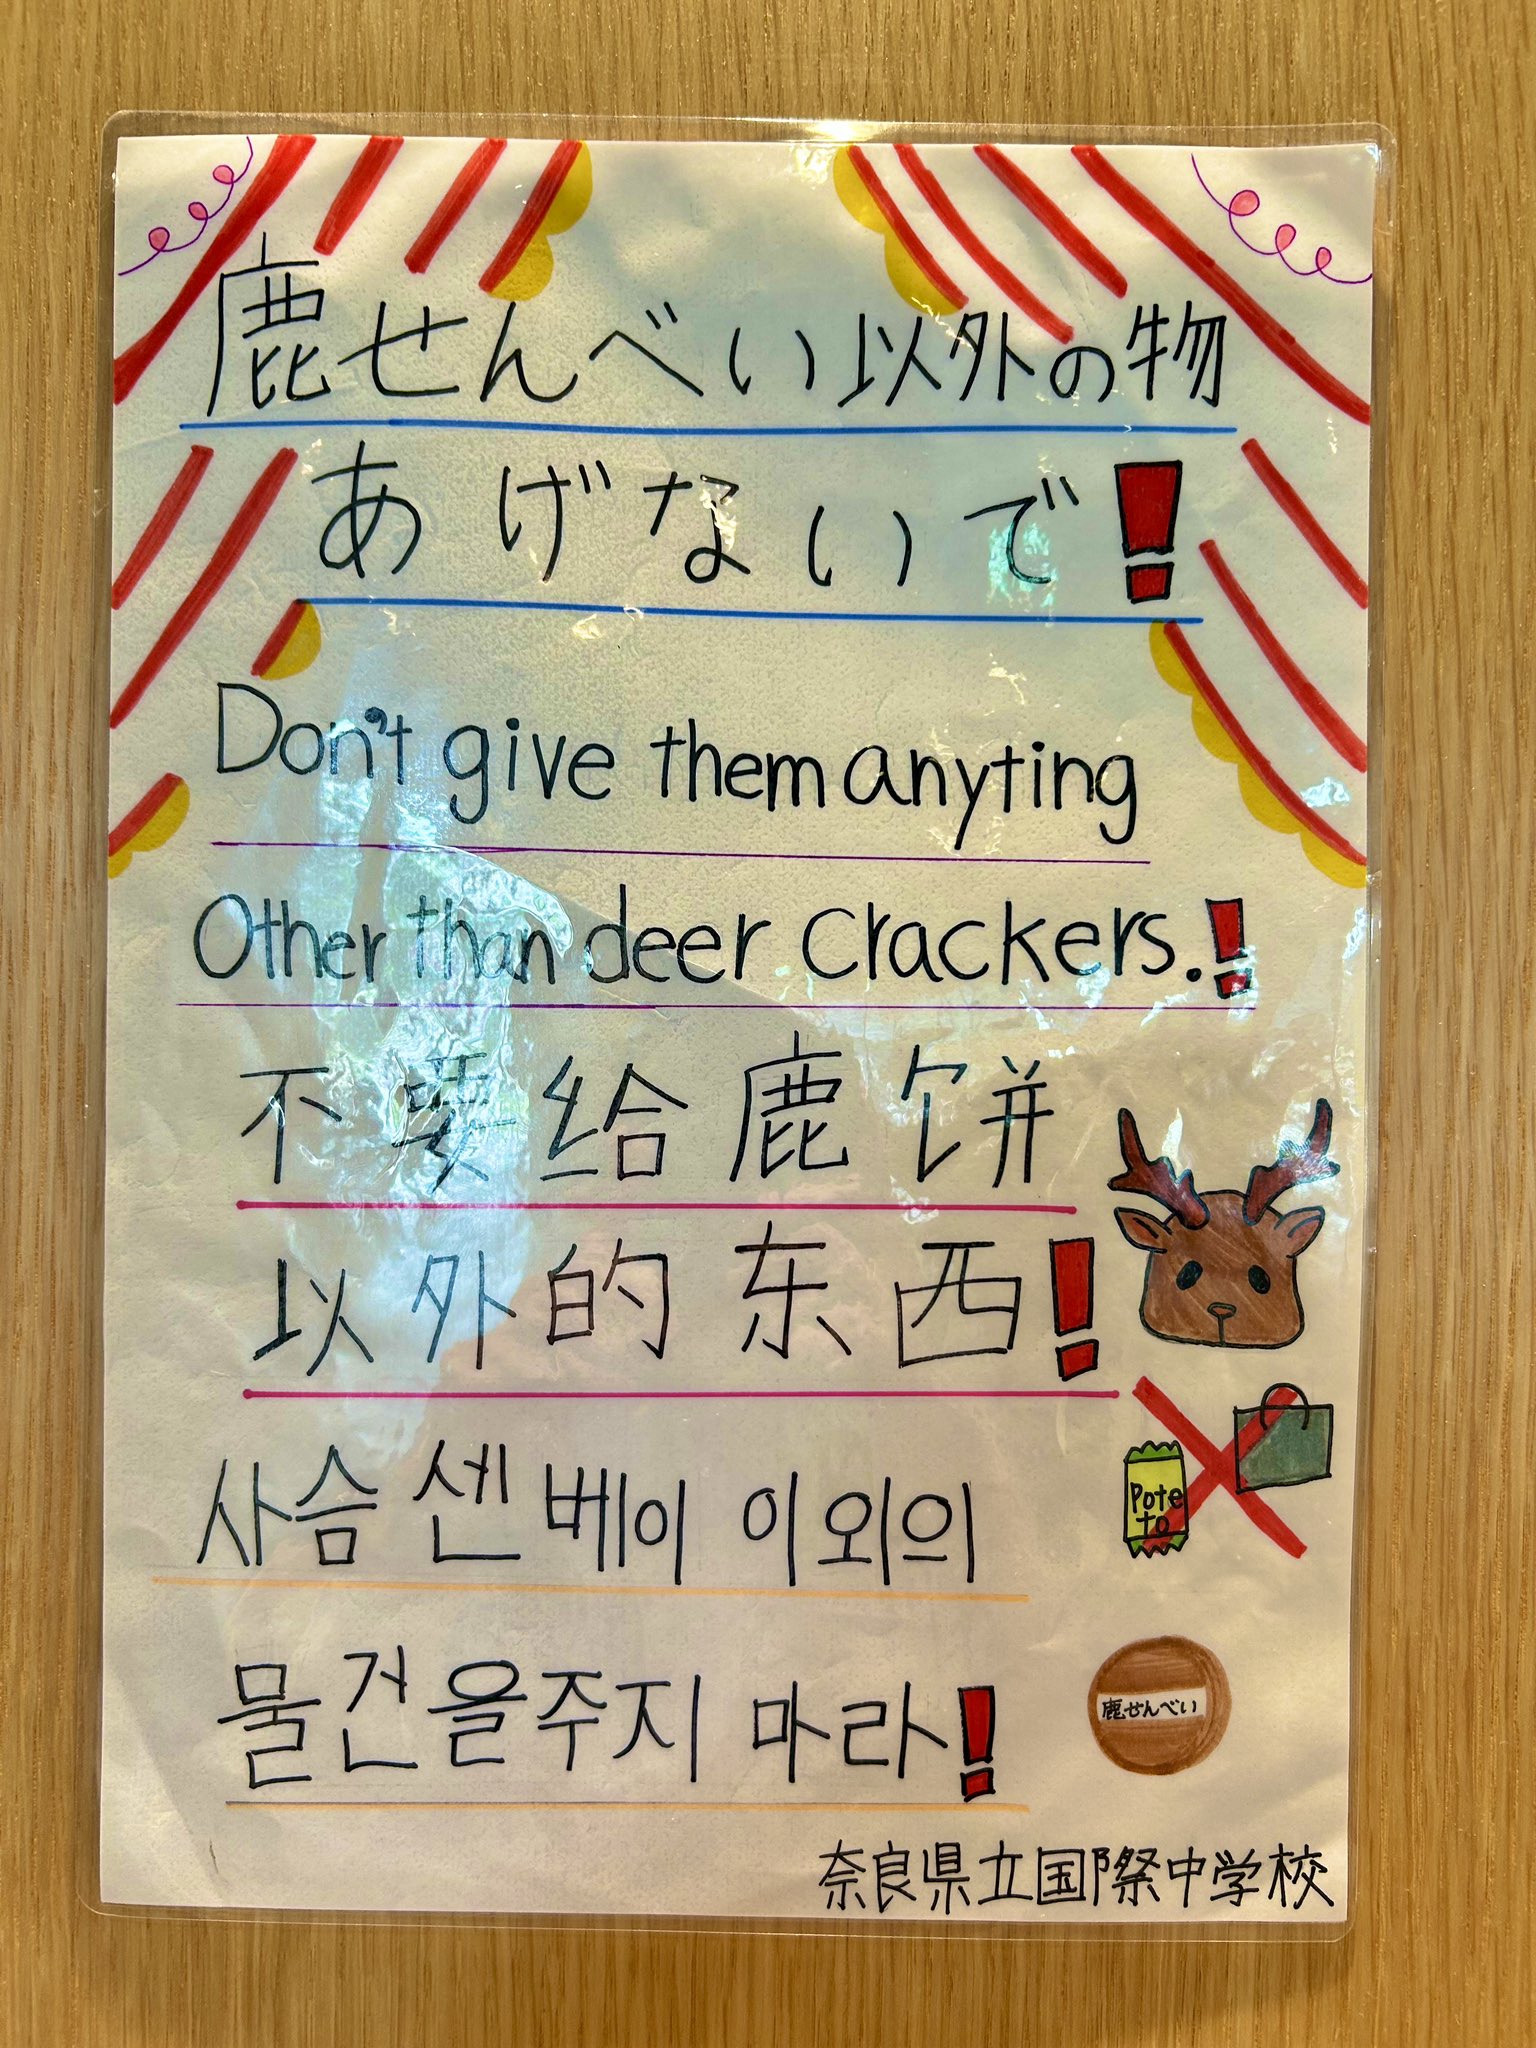 鹿せんべい以外の物
あげないで!
Don't give them anyting
Other than deer crackers.!
不要给鹿饼
以外的东西!
사슴센베이 이외의
Pote
to
물건을주지 마라!
鹿せんべい
奈良県立国際中学校